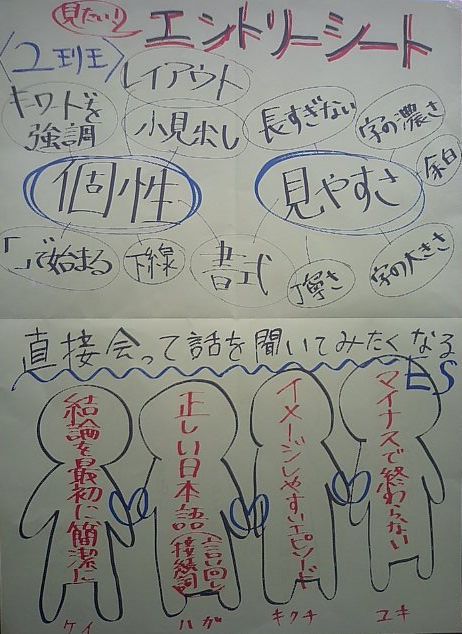 見たい!
エントリーシート
〈2班〉
レイアウト
キーワードを
強調
小見出し
長すぎない
字の濃さ
余白
個性
見やすさ
「」で始まる
下線
書式
丁寧さ
字の大きさ
直接会って話を聞いてみたくなる
ES
結論を最初に簡潔に
正しい日本語(言い回し
接続詞)
イメージしやすいエピソード
マイナスで終わらない
ケイ
ハガ
キクチ
ユキ